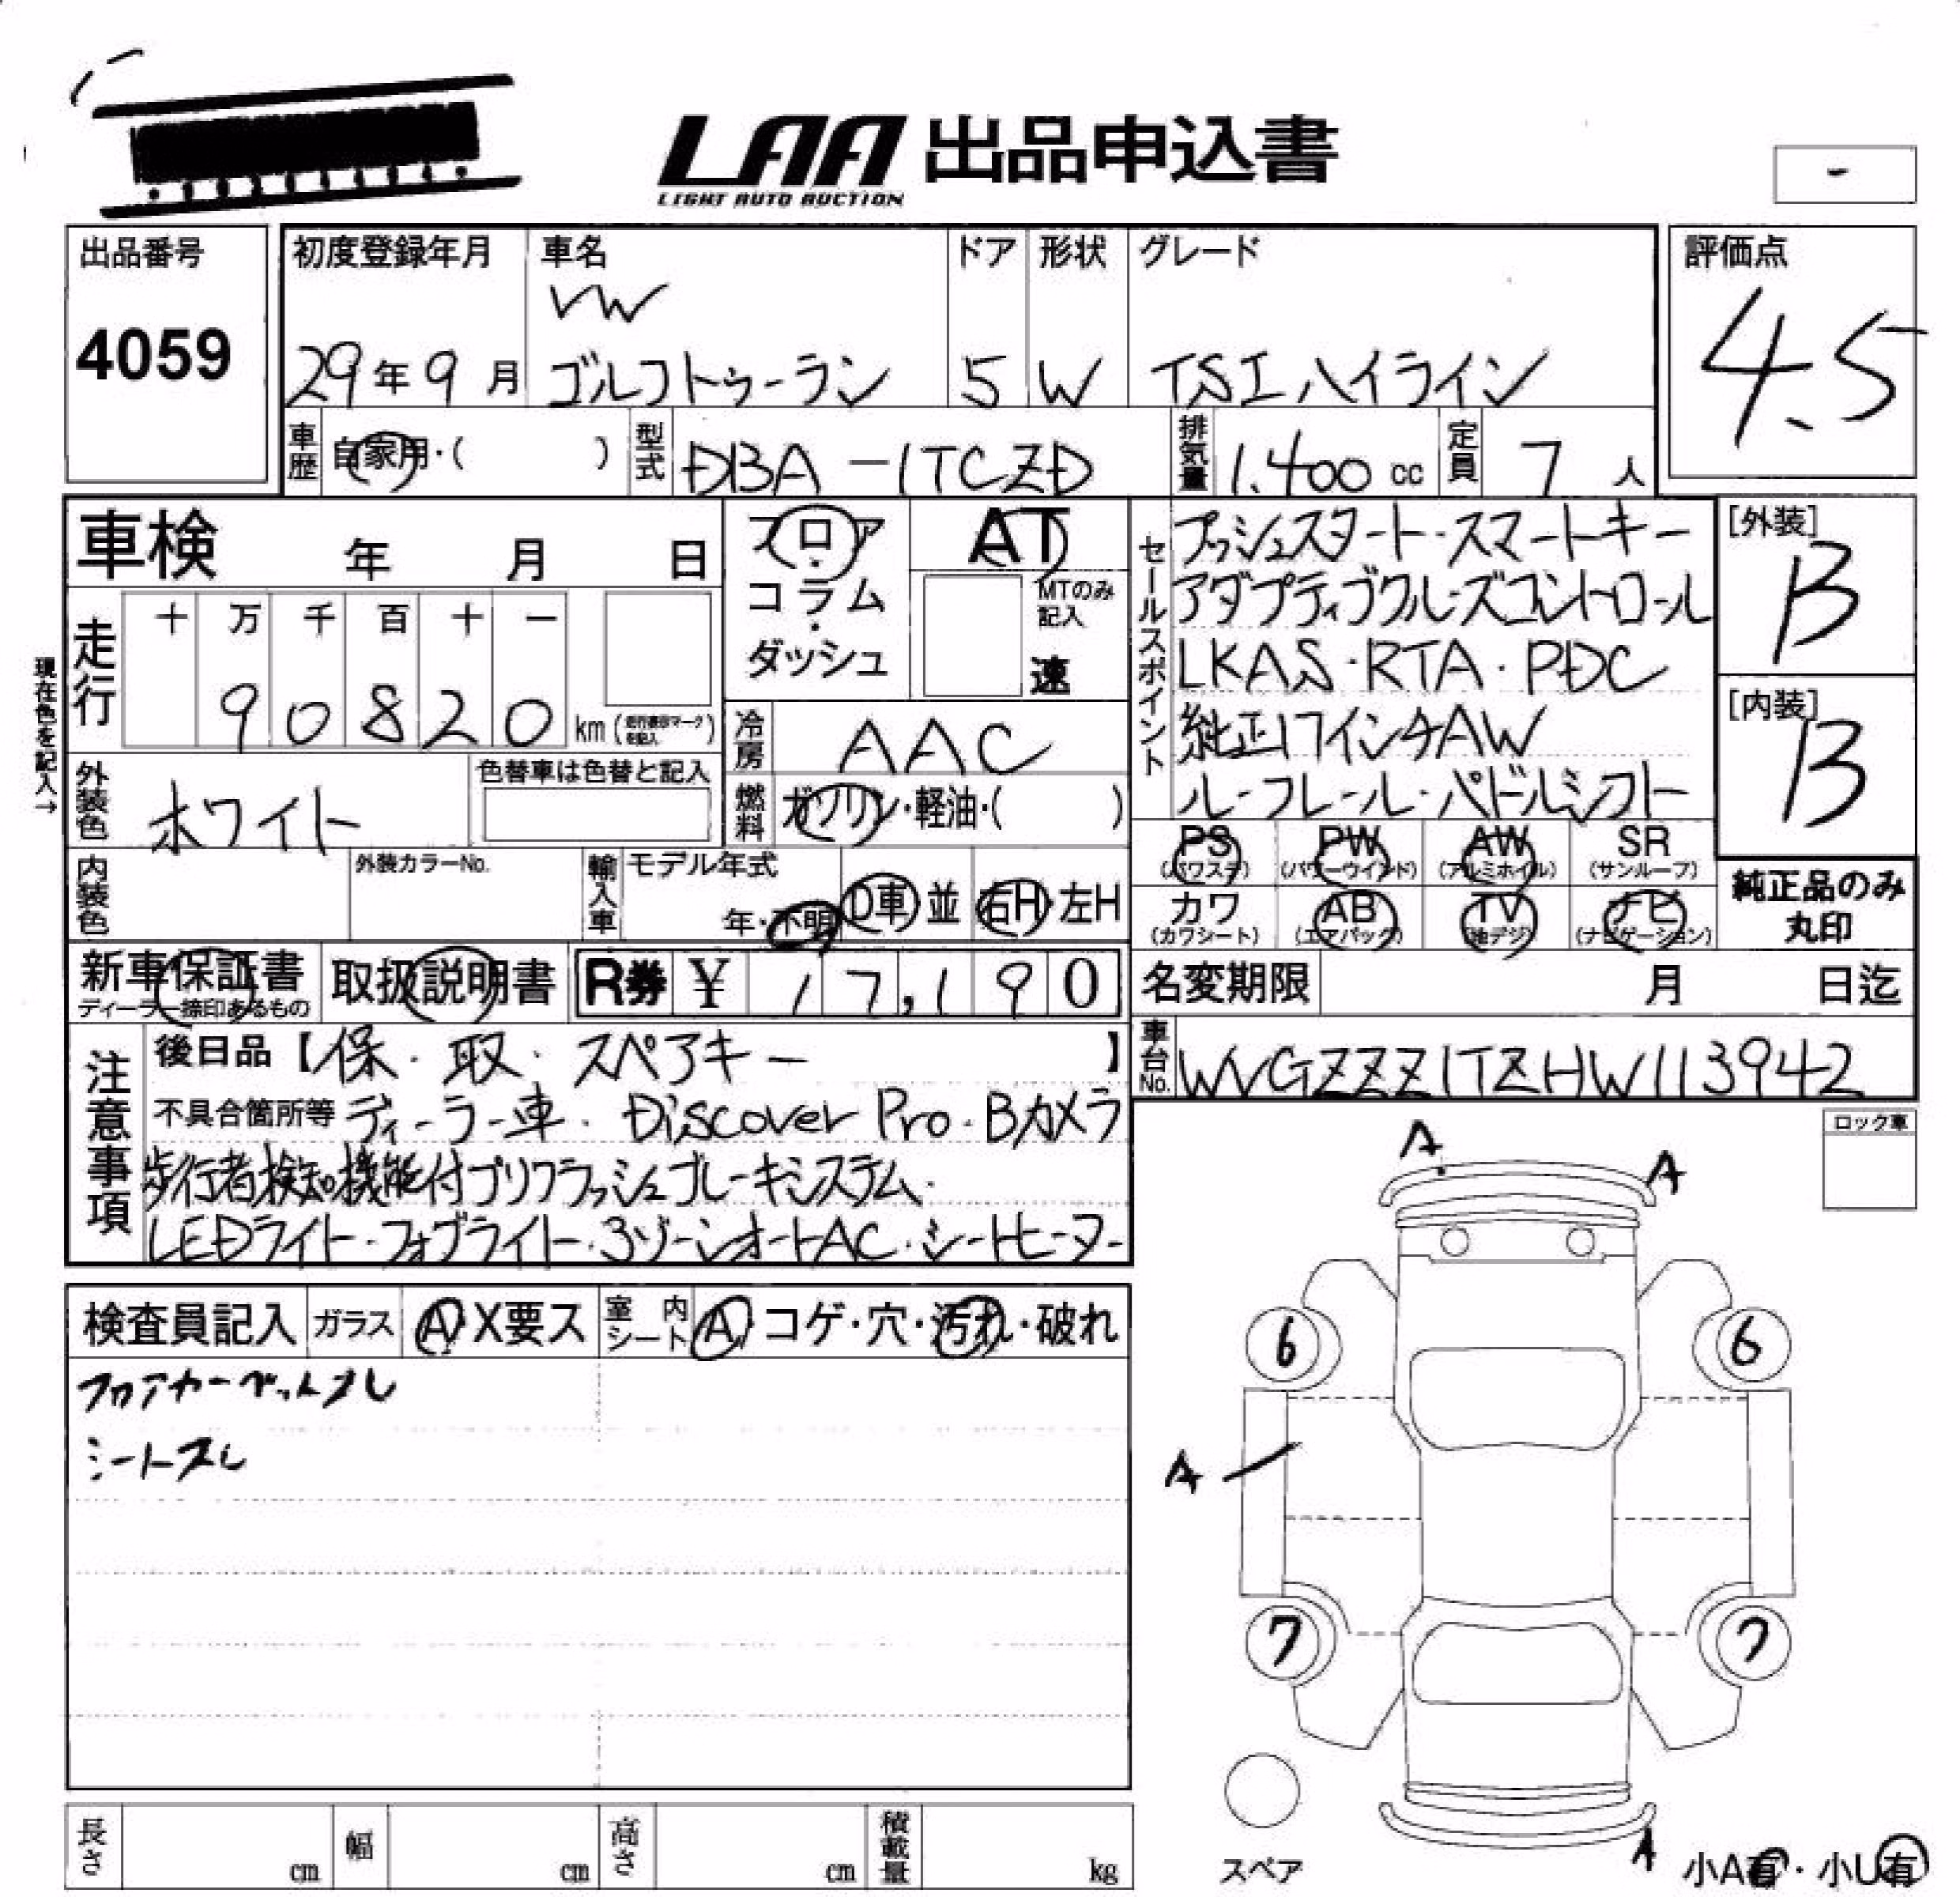 LAA 出品申込書
LIGHT AUTO AUCTION
-
出品番号
4059
初度登録年月
29年9月
車名
VW
ゴルフトゥーラン
ドア
5
形状
W
グレード
TSI ハイライン
評価点
4.5
車歴
自家用・( )
型式
DBA-1TCZD
排気量
1.400 cc
定員
7 人
車検 年 月 日
現在色を記入→
走行
十 万 千 百 十 一
9 0 8 2 0 km (走行表示マークを記入)
フロア・コラム・ダッシュ
AT
MTのみ記入
速
冷房
AAC
燃料
ガソリン・軽油・( )
外装色
ホワイト
色替車は色替と記入
内装色
外装カラーNo.
輸入車
モデル年式
年・不明
D車 並
右H・左H
新車保証書
ディーラー捺印あるもの
取扱説明書
R券 ¥ 17,190
セールスポイント
プッシュスタート・スマートキー
アダプティブクルーズコントロール
LKAS・RTA・PDC
純正17インチAW
ルーフレール・パドルシフト
[外装]
B
[内装]
B
PS (パワステ)
PW (パワーウインド)
AW (アルミホイル)
SR (サンルーフ)
カワ (カワシート)
AB (エアバック)
TV (地デジ)
ナビ (ナビゲーション)
純正品のみ丸印
名変期限 月 日迄
車台No.
WVGZZZ1TZHW113942
注意事項
後日品【保・取・スペアキー】
不具合箇所等 ディーラー車・Discover Pro・Bカメラ
歩行者検知機能付プリクラッシュブレーキシステム
LEDライト・フォグライト・3ゾーンオートAC・シートヒーター
検査員記入
ガラス
A X要ス
室内シート
A コゲ・穴・汚れ・破れ
フロアカーペットスレ
シートスレ
ロック車
A
A
6
6
A
7
7
スペア
A
小A有・小U有
長さ cm
幅 cm
高さ cm
積載量 kg